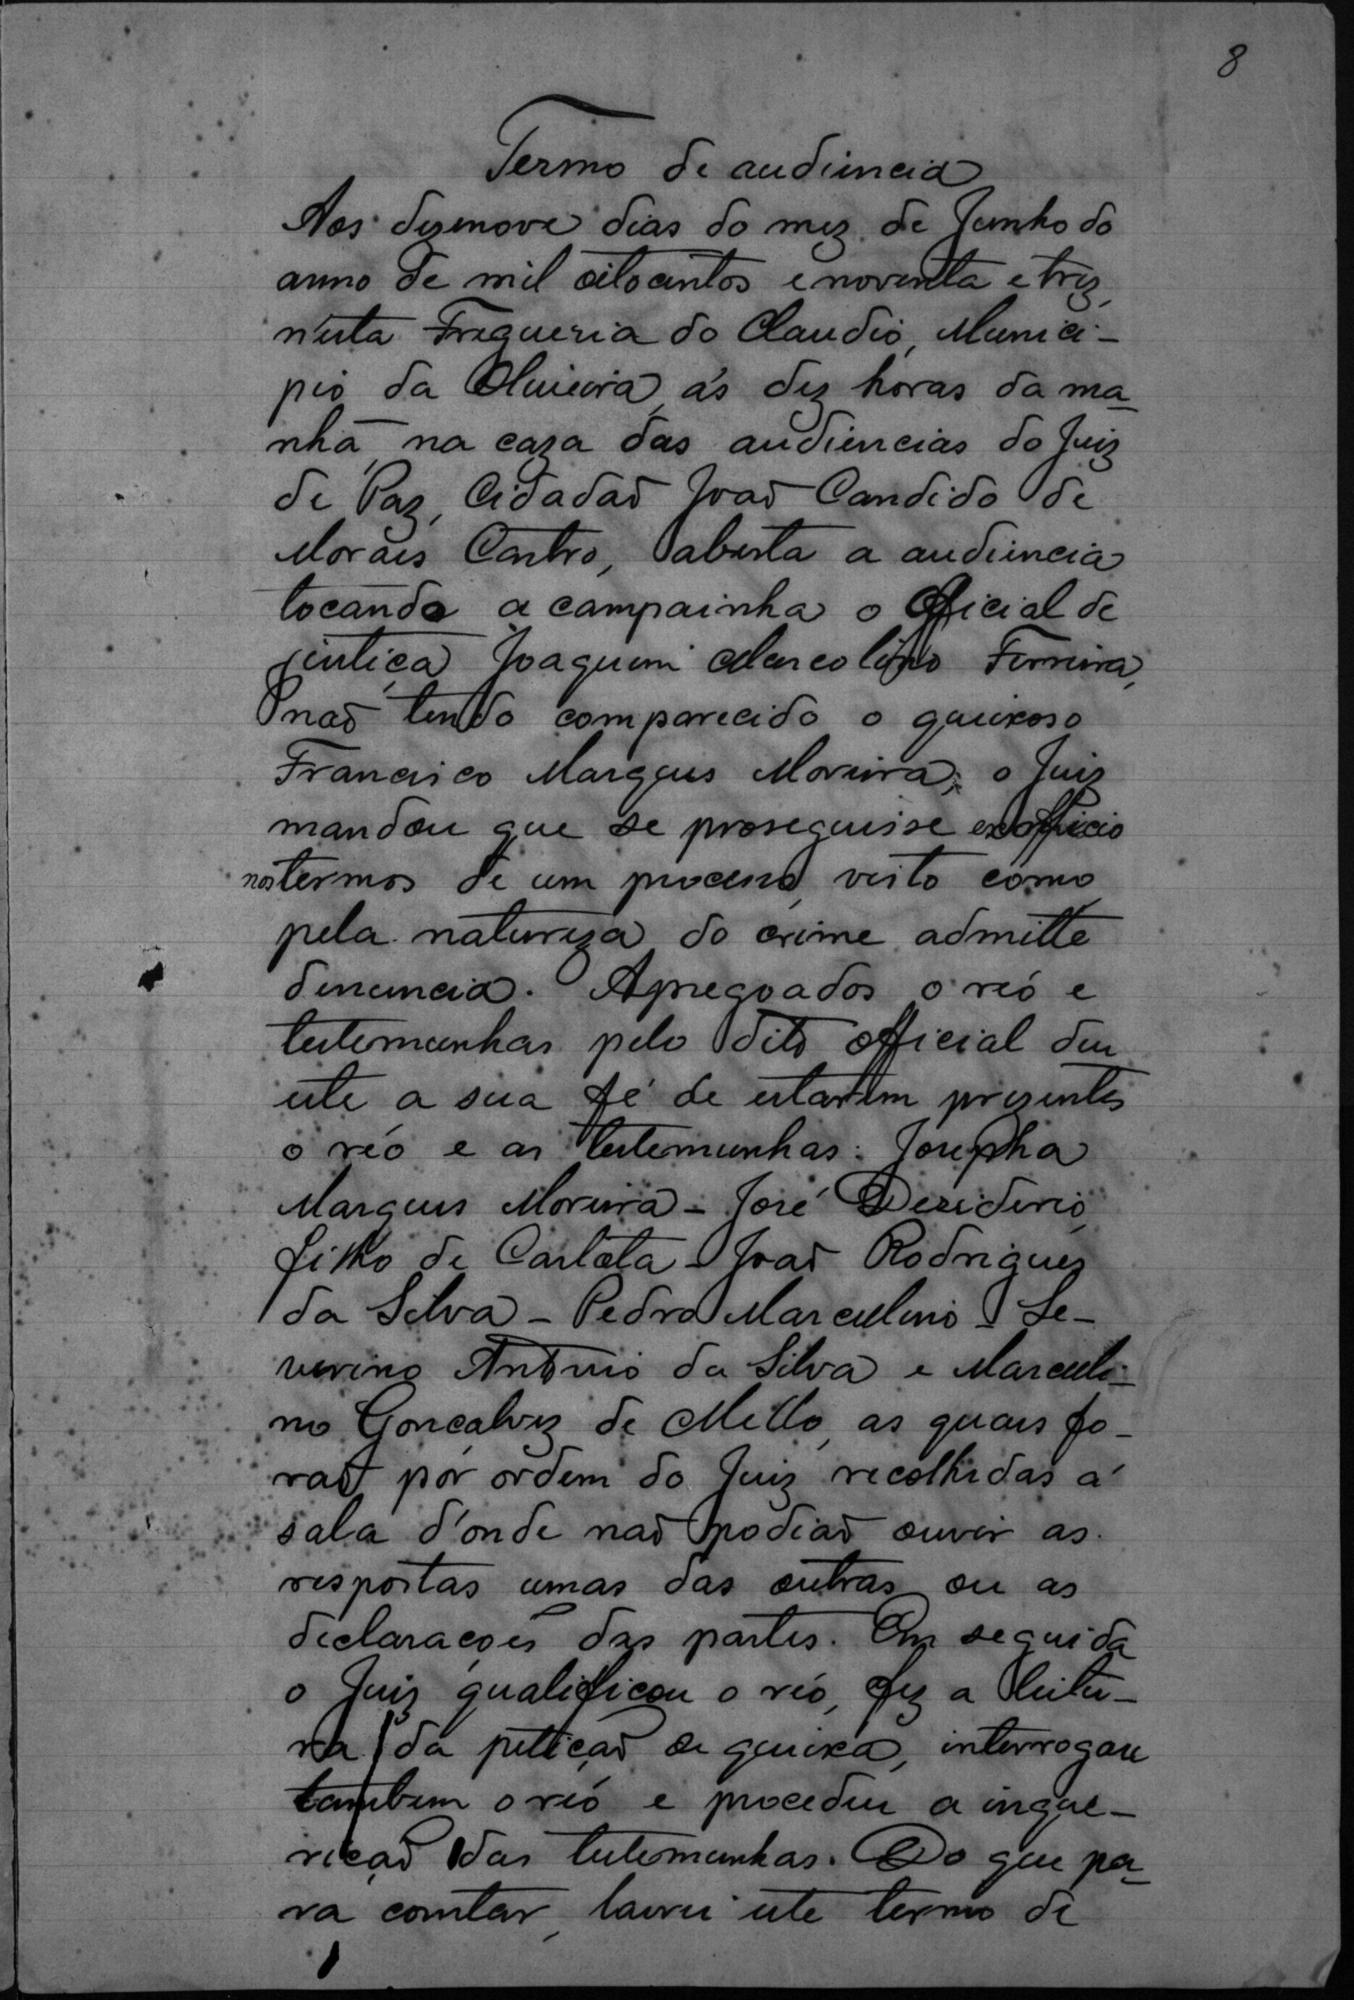 8
Termo de audiencia
Aos dezenove dias do mez de Junho do
anno de mil oitocentos e noventa e trez,
n'esta Freguezia do Claudio, Munici-
pio da Oliveira, ás dez horas da ma-
nhã, na caza das audiencias do Juiz
de Paz, Cidadaõ Joaõ Candido de
Morais Castro, aberta a audiencia
tocando a campainha o Official de
justiça Joaquim Marcolino Ferreira,
naõ tendo comparecido o queixoso
Francisco Marques Moreira, o Juiz
mandou que se proseguisse exofficio
nos termos de um processo, visto como
pela natureza do crime admitte
denuncia. Apregoados o réo e
testemunhas pelo dito official deu
este a sua fé de estarem prezentes
o réo e as testemunhas: Josepha
Marques Moreira - José Deziderio,
filho de Carlota - Joaõ Rodrigues
da Silva - Pedro Marcellino - Se-
verino Antonio da Silva e Marculi-
no Gonçalvez de Mello, as quais fo-
raõ por ordem do Juiz recolhidas á
sala d'onde naõ podiaõ ouvir as
respostas umas das outras ou as
declaraçoẽs das partes. Em seguida
o Juiz qualificou o réo, fez a leitu-
ra da petiçaõ de queixa, interrogou
tambem o réo e procedeu a inque-
riçaõ das testemunhas. Do que pa-
ra constar, lavrei este termo de